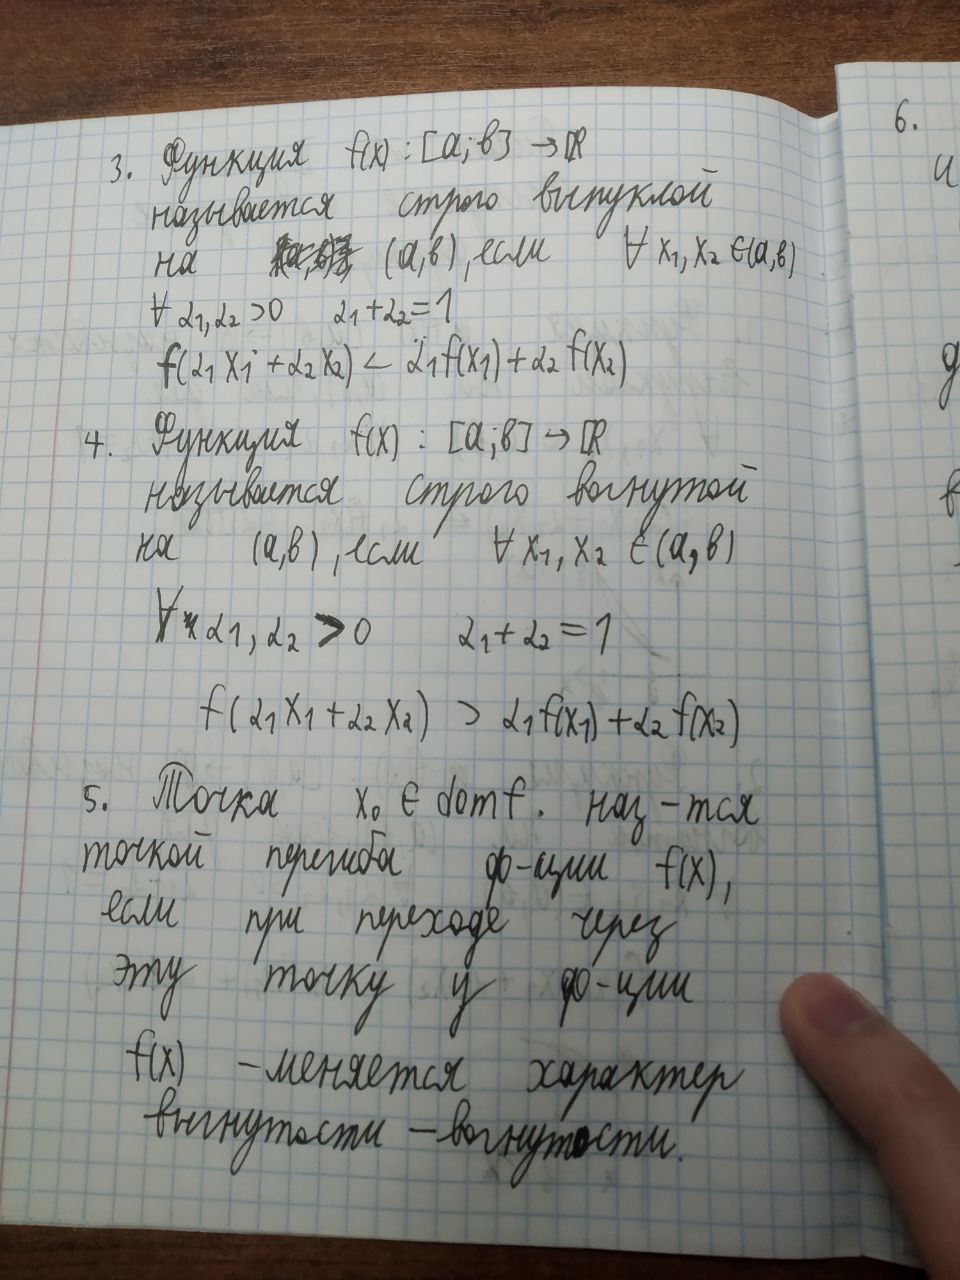 3. Функция f(x) : [a;b] → ℝ
называется строго выпуклой
на (a,b), если ∀ x₁, x₂ ∈(a,b)
∀ α₁, α₂ >0 α₁ + α₂ = 1
f(α₁ x₁ + α₂ x₂) < α₁ f(x₁) + α₂ f(x₂)
4. Функция f(x) : [a;b] → ℝ
называется строго вогнутой
на (a,b), если ∀ x₁, x₂ ∈ (a,b)
∀ α₁, α₂ > 0 α₁ + α₂ = 1
f(α₁ x₁ + α₂ x₂) > α₁ f(x₁) + α₂ f(x₂)
5. Точка x₀ ∈ dom f. наз-тся
точкой перегиба ф-ции f(x),
если при переходе через
эту точку у ф-ции
f(x) - меняется характер
выгнутости - вогнутости.
6.